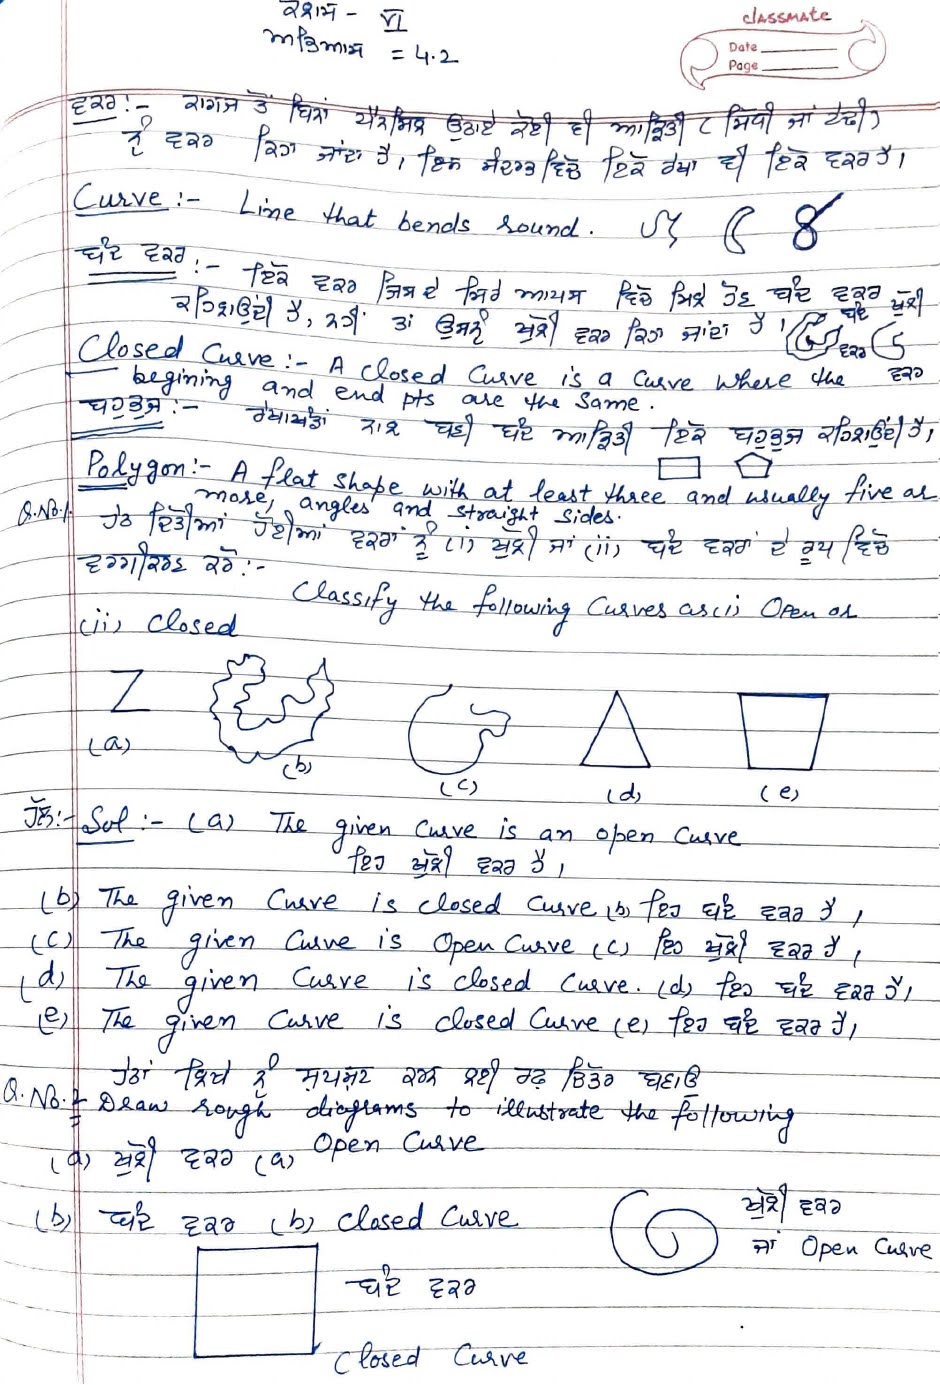 ਕਲਾਸ - VI
ਅਭਿਆਸ = 4.2
classmate
Date
Page
ਵਕਰ :- ਕਾਗਜ ਤੋਂ ਬਿਨਾਂ ਪੈਨਸਿਲ ਉਠਾਏ ਕੋਈ ਵੀ ਆਕ੍ਰਿਤੀ (ਸਿੱਧੀ ਜਾਂ ਟੇਢੀ)
ਨੂੰ ਵਕਰ ਕਿਹਾ ਜਾਂਦਾ ਹੈ। ਇਸ ਸੰਦਰਭ ਵਿੱਚੋ ਇੱਕੋ ਰੇਖਾ ਵੀ ਇੱਕੋ ਵਕਰ ਹੈ।
Curve :- Line that bends round.
ਬੰਦ ਵਕਰ :- ਇੱਕੋ ਵਕਰ ਜਿਸਦੇ ਸਿਰੇ ਆਪਸ ਵਿੱਚੋ ਮਿਲੇ ਹੋਣ ਬੰਦ ਵਕਰ
ਕਹਿਲਾਉਂਦੀ ਹੈ, ਨਹੀਂ ਤਾਂ ਉਸਨੂੰ ਖੁੱਲੀ ਵਕਰ ਕਿਹਾ ਜਾਂਦਾ ਹੈ।
ਬੰਦ ਵਕਰ
ਖੁੱਲੀ ਵਕਰ
Closed Curve :- A closed Curve is a Curve where the
begining and end pts are the same.
ਬਹੁਭੁਜ :- ਰੇਖਾਖੰਡਾਂ ਨਾਲ ਬਣੀ ਬੰਦ ਆਕ੍ਰਿਤੀ ਇੱਕੋ ਬਹੁਭੁਜ ਕਹਿਲਾਉਂਦੀ ਹੈ।
Polygon :- A flat shape with at least three and usually five or
more, angles and straight sides.
Q.No.1. ਹੇਠ ਦਿੱਤੀਆਂ ਹੋਈਆਂ ਵਕਰਾਂ ਨੂੰ (i) ਖੁੱਲੀ ਜਾਂ (ii) ਬੰਦ ਵਕਰਾਂ ਦੇ ਰੂਪ ਵਿੱਚੋ
ਵਰਗੀਕਰਣ ਕਰੋ :-
Classify the following Curves as (i) Open or
(ii) Closed
(a)
(b)
(c)
(d)
(e)
ਹੱਲ :- Sol :- (a) The given Curve is an open Curve
ਇਹ ਖੁੱਲੀ ਵਕਰ ਹੈ।
(b) The given Curve is closed Curve (b) ਇਹ ਬੰਦ ਵਕਰ ਹੈ।
(c) The given Curve is Open Curve (c) ਇਹ ਖੁੱਲੀ ਵਕਰ ਹੈ।
(d) The given Curve is closed Curve. (d) ਇਹ ਬੰਦ ਵਕਰ ਹੈ।
(e) The given Curve is closed Curve (e) ਇਹ ਬੰਦ ਵਕਰ ਹੈ।
ਹੇਠਾਂ ਲਿਖੇ ਨੂੰ ਸਪਸ਼ਟ ਕਰਨ ਲਈ ਰਫ਼ ਚਿੱਤਰ ਬਣਾਉ
Q.No.2 Draw rough diagrams to illustrate the following
(a) ਖੁੱਲੀ ਵਕਰ (a) Open Curve
(b) ਬੰਦ ਵਕਰ (b) Closed Curve
ਖੁੱਲੀ ਵਕਰ
ਜਾਂ Open Curve
ਬੰਦ ਵਕਰ
Closed Curve